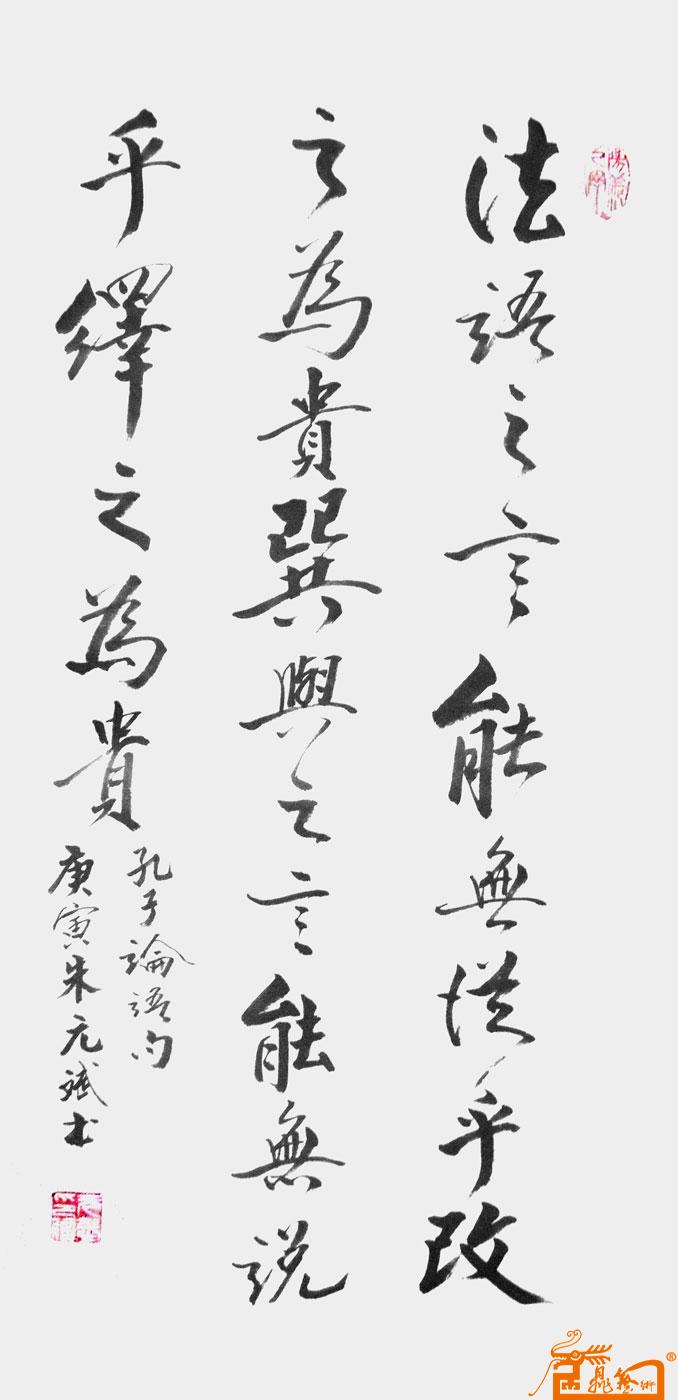 法語之言能無從乎改
之為貴巽與之言能無說
乎繹之為貴
孔子論語句
庚寅朱元斌書